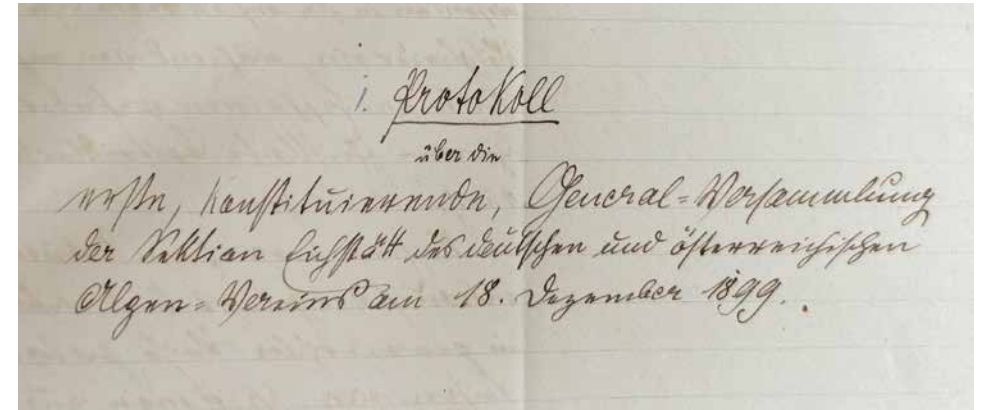 1. Protokoll
über die
erste, konstituierende, General=Versammlung
der Sektion Eichstätt des deutschen und österreichischen
Alpen=Vereins am 18. Dezember 1899.